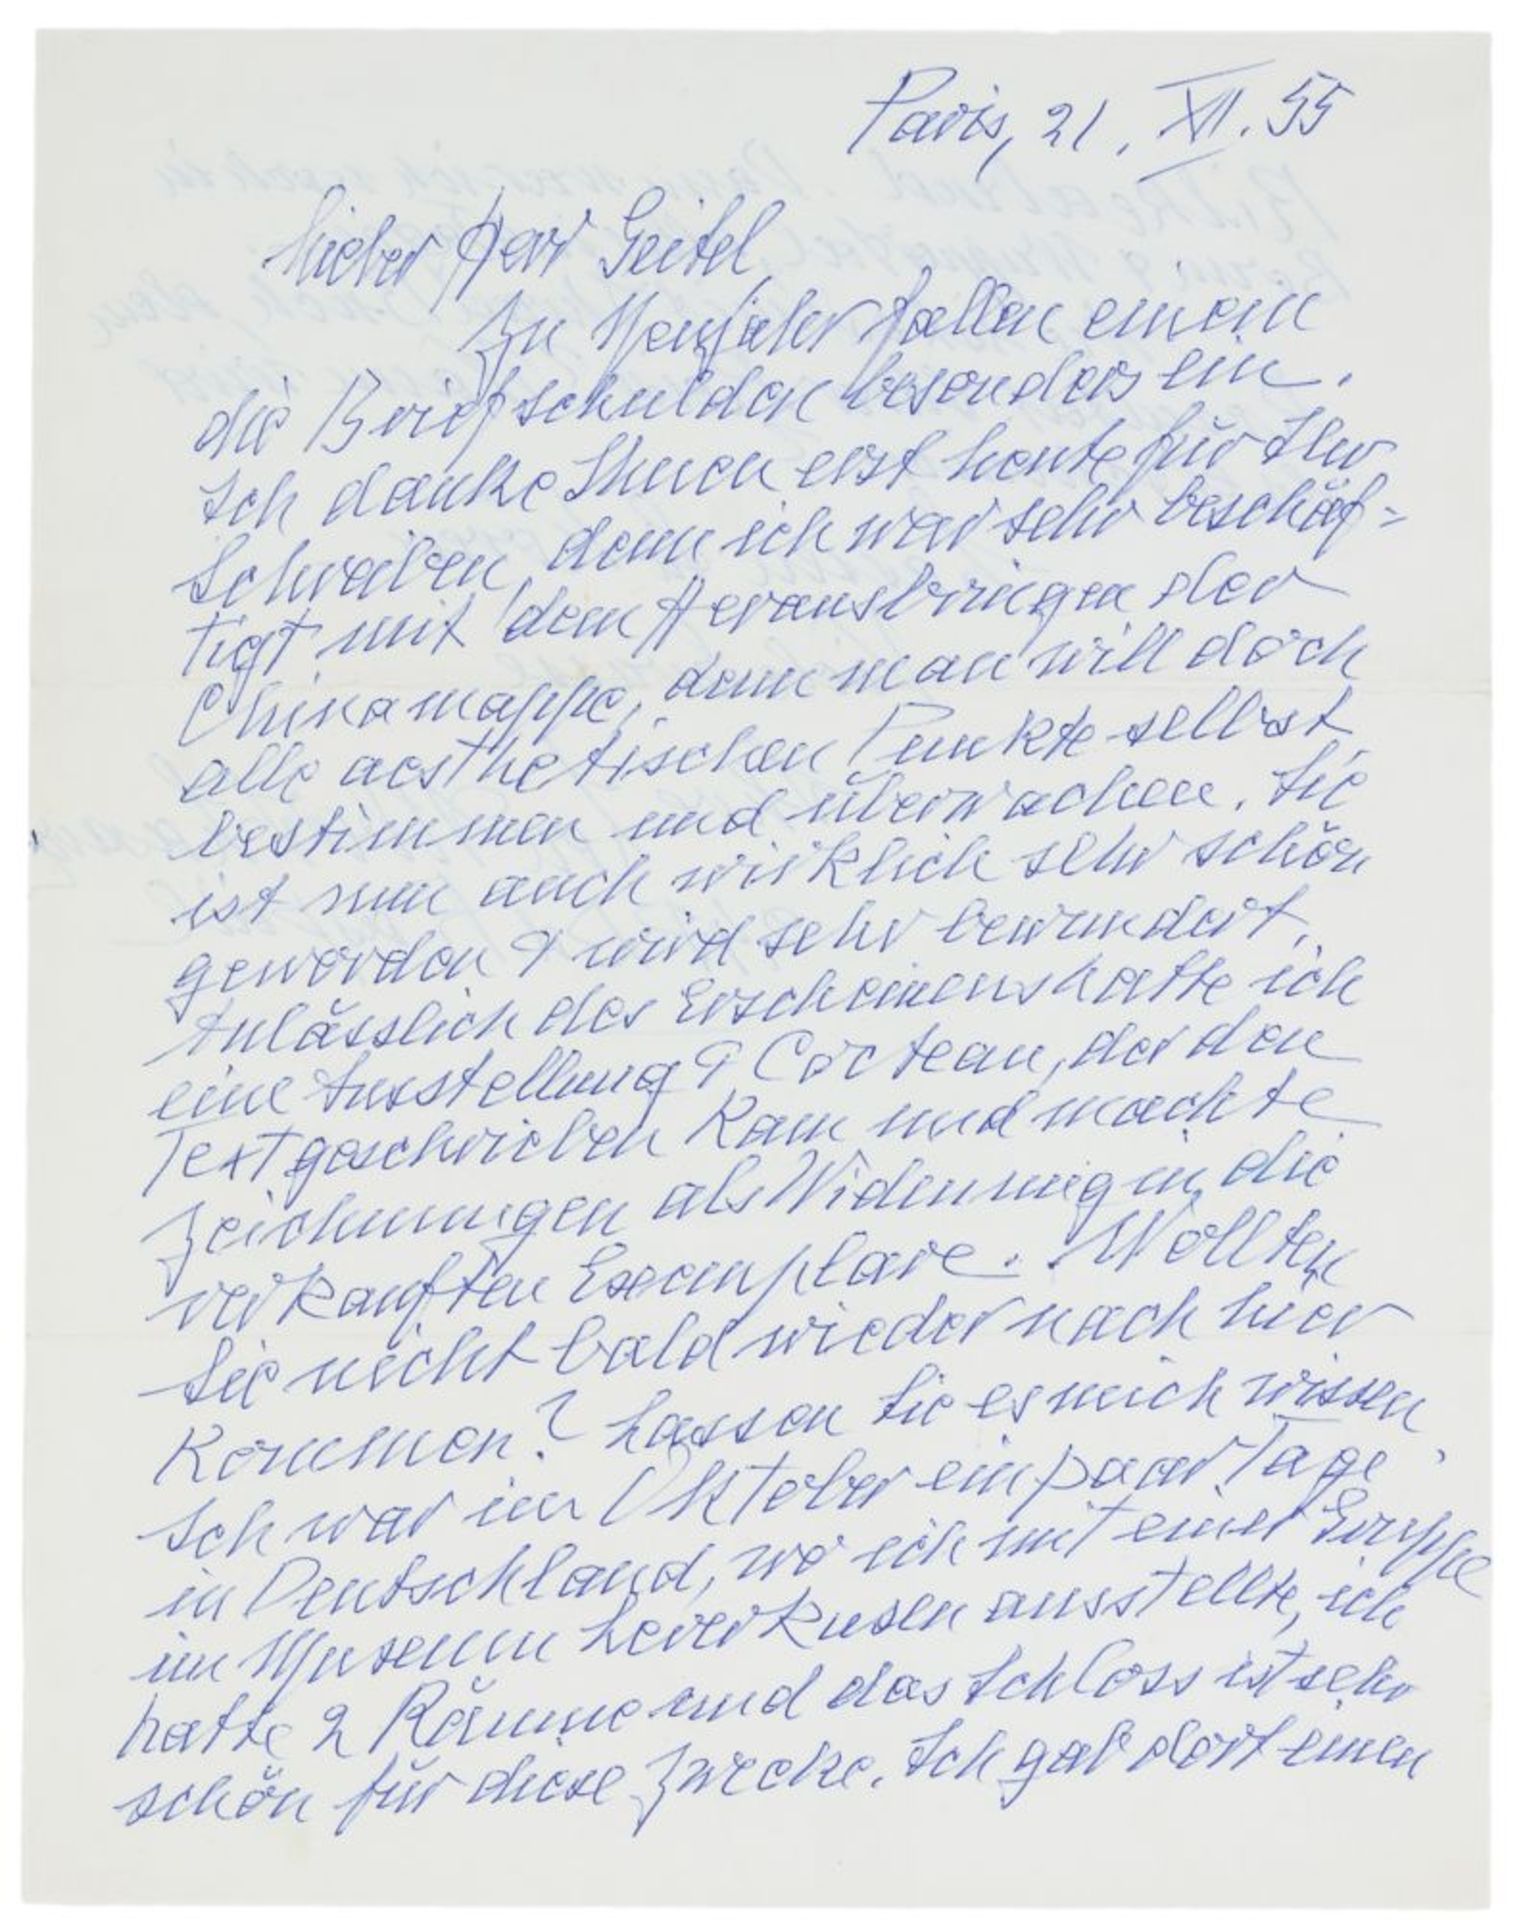 Paris, 21. XII. 55
Lieber Herr Geitel,
Zu Neujahr fallen einem
die Briefschulden besonders ein.
Ich danke Ihnen erst heute für Ihr
Schreiben, denn ich war sehr beschäf-
tigt mit dem Herausbringen der
Chinamappe, denn man will doch
alle aesthetischen Punkte selbst
bestimmen und überwachen. Sie
ist nun auch wirklich sehr schön
geworden & wird sehr bewundert.
Anlässlich des Erscheinens hatte ich
eine Ausstellung & Cocteau, der den
Text geschrieben kam und machte
Zeichnungen als Widmung in die
verkauften Exemplare. Wollten
Sie nicht bald wieder nach hier
kommen? Lassen Sie es mich wissen.
Ich war im Oktober ein paar Tage
in Deutschland, wo ich mit einer Gruppe
im Museum Leverkusen ausstellte, ich
hatte 2 Räume und das Schloss ist sehr
schön für diese Zwecke. Ich gab dort einen